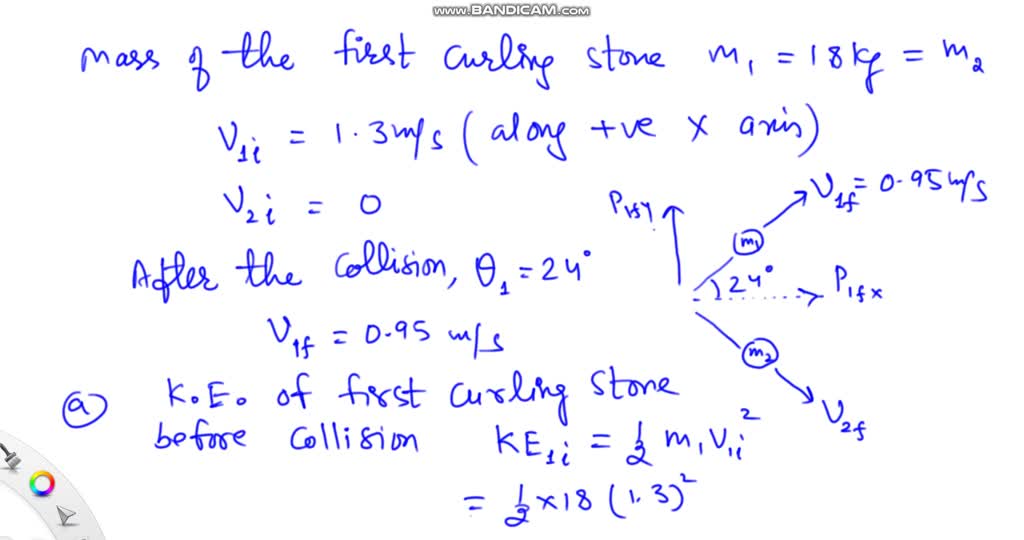 www.BANDICAM.com
Mass of the first curling stone m₁ = 18 kg = m₂
V₁ᵢ = 1.3 m/s (along +ve x axis)
V₂ᵢ = 0
After the collision, θ₁ = 24°
V₁f = 0.95 m/s
P₁fy
V₁f = 0.95 m/s
m₁
24°
P₁fx
m₂
V₂f
(a) K.E. of first curling stone
before collision KE₁ᵢ = 1/2 m₁ V₁ᵢ²
= 1/2 × 18 (1.3)²